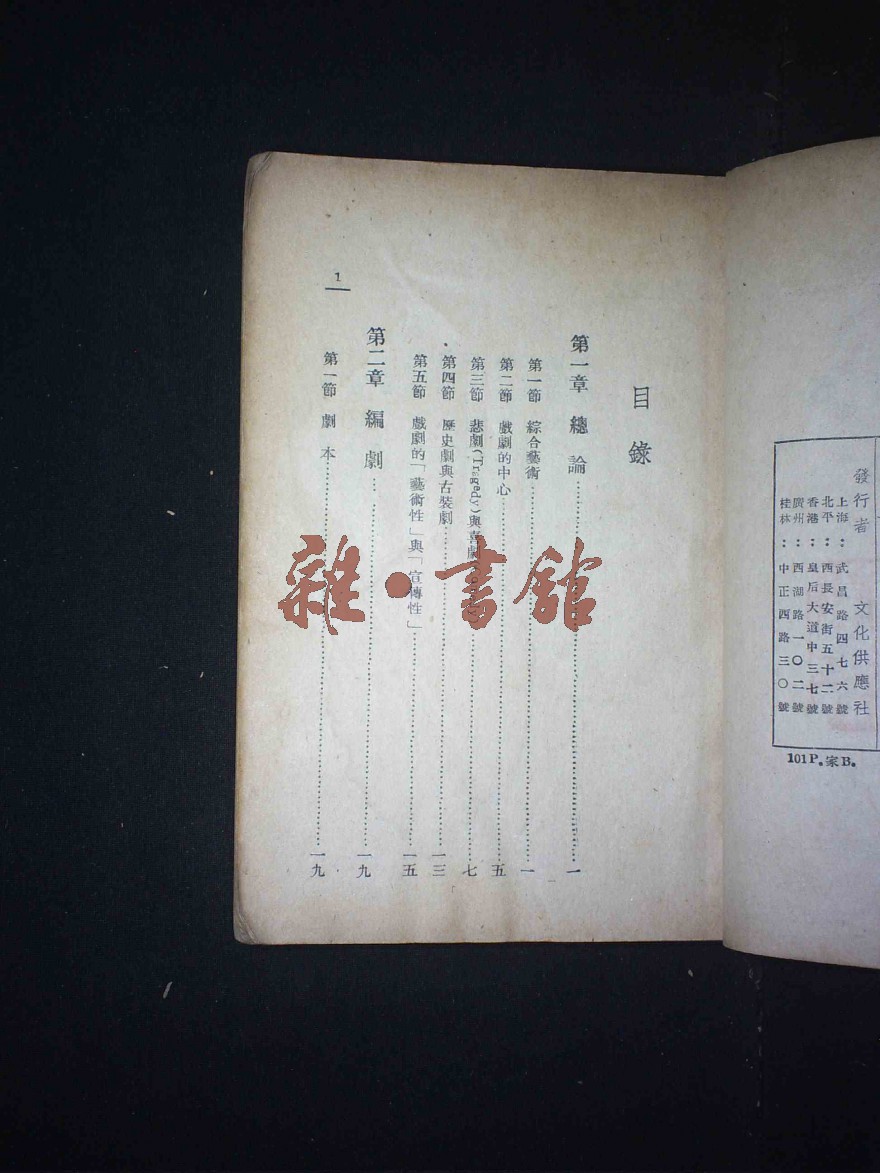 發行者 文化供應社
上海：武昌路四七六號
北平：西長安街五十二號
香港：皇后大道中三七號
廣州：西湖路一〇二號
桂林：中正西路三〇號
101P。家B。
目錄
第一章 總論……一
第一節 綜合藝術……一
第二節 戲劇的中心……五
第三節 悲劇(Tragedy)與喜劇……七
第四節 歷史劇與古裝劇……一三
第五節 戲劇的「藝術性」與「宣傳性」……一五
第二章 編劇……一九
第一節 劇本……一九
1
雜·書館